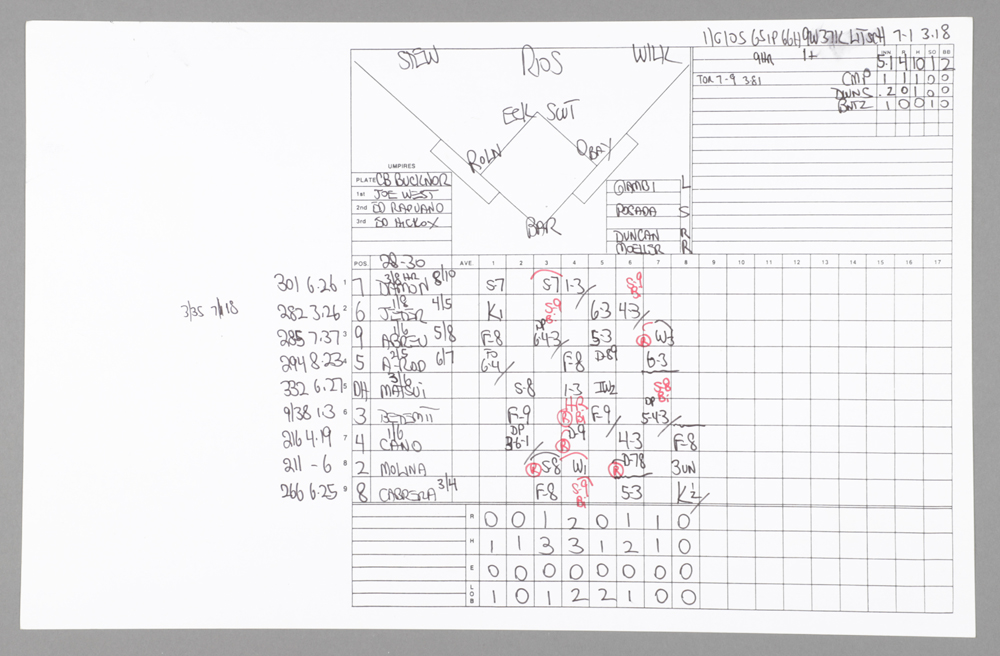 7-1 3.18
STEW RIOS WILK
9HR 1+ INN R H SO BB
5.1 4 10 1 2
TOR 7-9 3.81 CMP 1 1 1 0 0
DWNS .2 0 1 0 0
1 0 0 1 0
ECK SCUT
ROLN OBAY
UMPIRES
PLATE CB BUCKNOR
1st JOE WEST
2nd ED RAPUANO
3rd ED HICKOX
GIAMBI L
POSADA S
DUNCAN R
MOELLER R
BAR
28-30
POS. AVE. 1 2 3 4 5 6 7 8 9 10 11 12 13 14 15 16 17
301 6.26 1 7 3/8 HR DAMON 8/10 S-7 S7 1-3 S-9 Bi
3/35 7/118 282 3.26 2 6 1/8 JETER 4/5 K1 S-9 Bi 6-3 4-3
285 7.37 3 9 1/6 ABREU 5/8 F-8 DP 6-4-3 5-3 R W3
294 8.23 4 5 2/5 A-ROD 6/7 FO 6-4 F-8 D-89 6-3
332 6.27 5 DH 3/6 MATSUI S-8 1-3 IW2 S-8 Bi
9/38 1.3 6 3 BETEMIT F-9 HR R Bi F-9 DP 5-4-3
216 4.19 7 4 1/6 CANO DP 3-6-1 R D-9 4-3 F-8
211 -6 8 2 MOLINA R S-8 W1 R D-78 3UN
266 6.25 9 8 CABRERA 3/4 F-8 S-9 Bi 5-3 K2
R 0 0 1 2 0 1 1 0
H 1 1 3 3 1 2 1 0
E 0 0 0 0 0 0 0 0
LOB 1 0 1 2 2 1 0 0